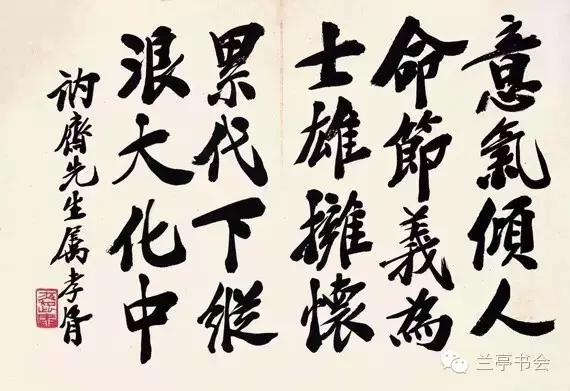 意氣傾人
命節義為
士雄擁懷
累代下縱
浪大化中
訥齋先生属孝胥
兰亭书会